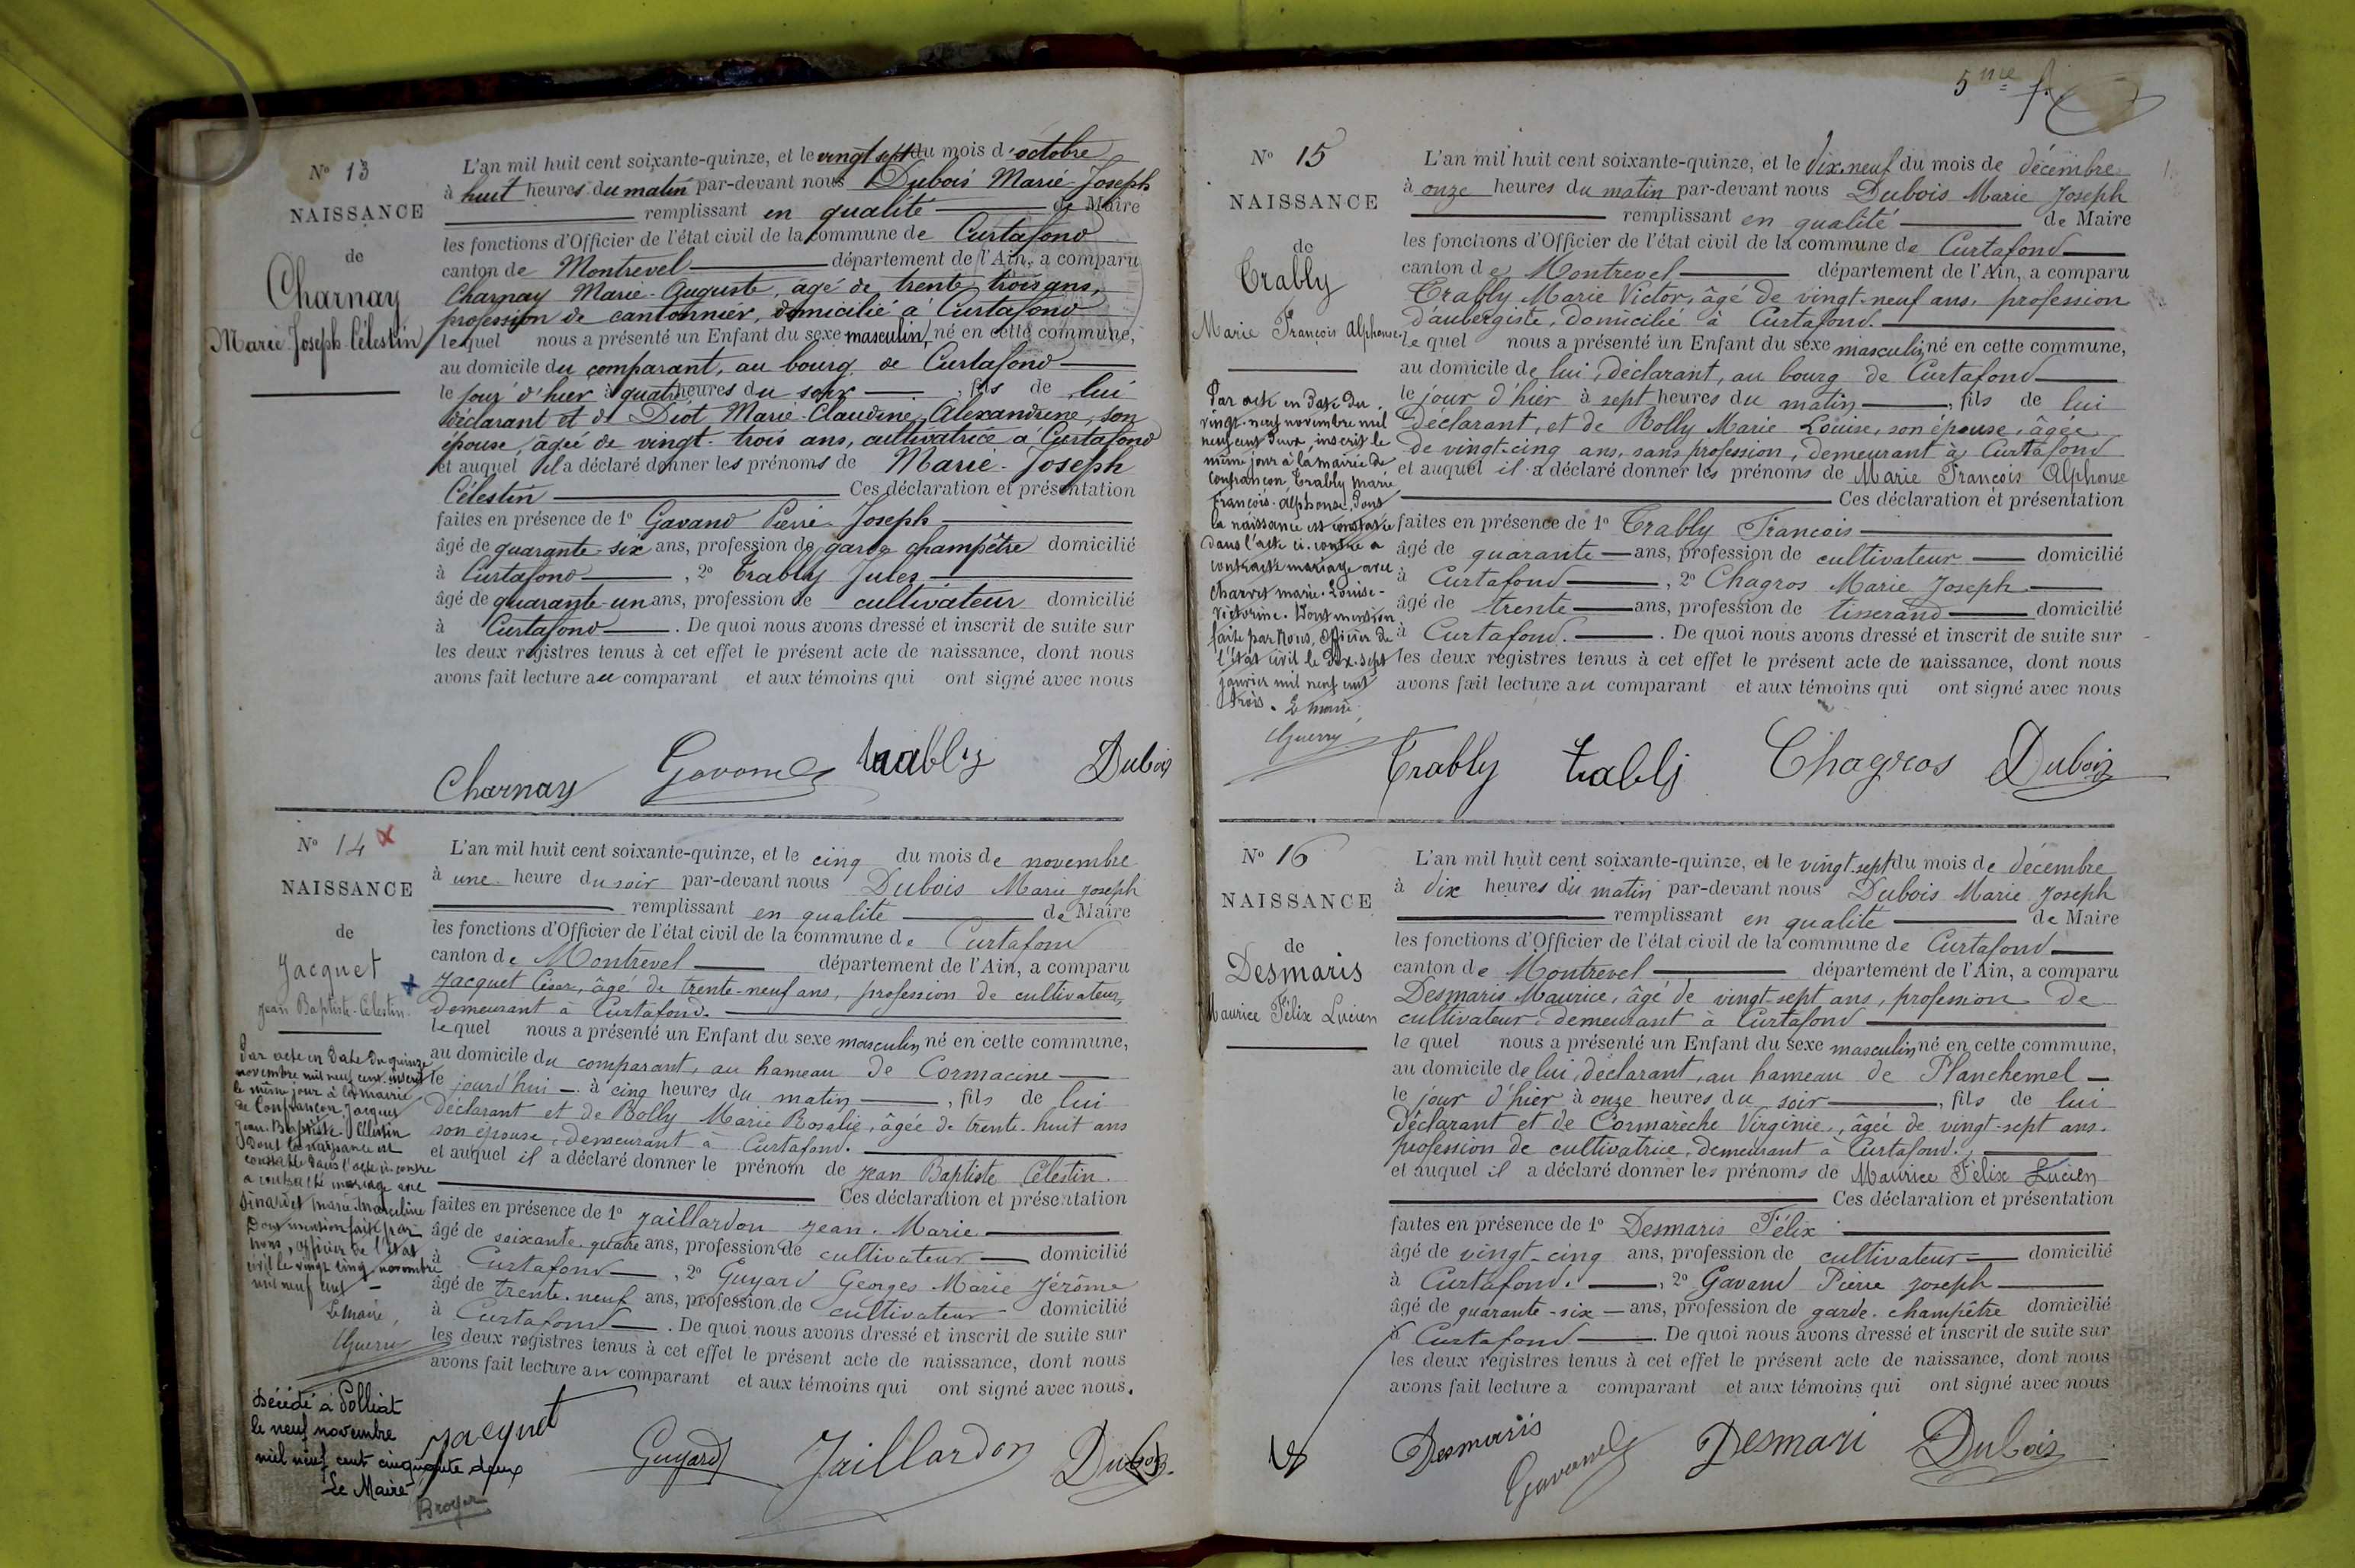 Nº 13
NAISSANCE
de
Charnay
Marie Joseph Célestin
L'an mil huit cent soixante-quinze, et le vingt sept du mois d'octobre
à huit heures du matin par-devant nous Dubois Marie Joseph
remplissant en qualité de Maire
les fonctions d'Officier de l'état civil de la commune de Curtafond
canton de Montrevel département de l'Ain, a comparu
Charnay Marie-Auguste, âgé de trente trois ans,
profession de cantonnier, domicilié à Curtafond
lequel nous a présenté un Enfant du sexe masculin, né en cette commune,
au domicile du comparant, au bourg de Curtafond
le jour d'hier à quatre heures du soir, fils de lui
déclarant et de Diot Marie-Claudine, Alexandrine, son
épouse, âgée de vingt-trois ans, cultivatrice à Curtafond
et auquel il a déclaré donner les prénoms de Marie-Joseph
Célestin Ces déclaration et présentation
faites en présence de 1º Gavand Pierre Joseph
âgé de quarante-six ans, profession de garde champêtre domicilié
à Curtafond, 2º Trably Jules
âgé de quarante-un ans, profession de cultivateur domicilié
à Curtafond. De quoi nous avons dressé et inscrit de suite sur
les deux registres tenus à cet effet le présent acte de naissance, dont nous
avons fait lecture au comparant et aux témoins qui ont signé avec nous
Charnay Gavand trably Dubois
Nº 14 x
NAISSANCE
de
Jacquet
Jean Baptiste-Célestin
Par acte en date du quinze
novembre mil neuf cent inscrit
le même jour à la mairie
de Confrançon Jacquet
Jean-Baptiste-Célestin
dont la naissance est
constatée dans l'acte ci-contre
a contracté mariage avec
marie-marceline
Dont mention faite par
nous, officier de l'état
civil le vingt cinq novembre
mil neuf cent
Le maire,
Guerry
Décédé à Polliat
le neuf novembre
mil neuf cent cinquante deux
Le Maire
Broyer
L'an mil huit cent soixante-quinze, et le cinq du mois de novembre
à une heure du soir par-devant nous Dubois Marie Joseph
remplissant en qualité de Maire
les fonctions d'Officier de l'état civil de la commune de Curtafond
canton de Montrevel département de l'Ain, a comparu
Jacquet César, âgé de trente-neuf ans, profession de cultivateur,
demeurant à Curtafond.
lequel nous a présenté un Enfant du sexe masculin né en cette commune,
au domicile du comparant, au hameau de Cormacine
le jourd'hui à cinq heures du matin, fils de lui
déclarant et de Bolly Marie Rosalie, âgée de trente-huit ans
son épouse, demeurant à Curtafond.
et auquel il a déclaré donner le prénom de Jean Baptiste Célestin.
Ces déclaration et présentation
faites en présence de 1º Jaillardon Jean-Marie
âgé de soixante-quatre ans, profession de cultivateur domicilié
à Curtafond, 2º Guyard Georges Marie Jérôme
âgé de trente-neuf ans, profession de cultivateur domicilié
à Curtafond. De quoi nous avons dressé et inscrit de suite sur
les deux registres tenus à cet effet le présent acte de naissance, dont nous
avons fait lecture au comparant et aux témoins qui ont signé avec nous.
Jacquet Guyard Jaillardon Dubois
5me f.
Nº 15
NAISSANCE
de
Trably
Marie François Alphonse
Par acte en date du
vingt-neuf novembre mil
neuf cent deux, inscrit le
même jour à la mairie de
Confrançon, Trably Marie
François-Alphonse, dont
la naissance est constatée
dans l'acte ci-contre a
contracté mariage avec
Charvet Marie-Louise-
Victorine. Dont mention
faite par Nous, Officier de
l'état civil le dix-sept
janvier mil neuf cent
trois. Le maire,
Guerry
L'an mil huit cent soixante-quinze, et le dix-neuf du mois de décembre
à onze heures du matin par-devant nous Dubois Marie Joseph
remplissant en qualité de Maire
les fonctions d'Officier de l'état civil de la commune de Curtafond
canton de Montrevel département de l'Ain, a comparu
Trably Marie Victor, âgé de vingt-neuf ans, profession
d'aubergiste, domicilié à Curtafond.
lequel nous a présenté un Enfant du sexe masculin né en cette commune,
au domicile de lui, déclarant, au bourg de Curtafond
le jour d'hier à sept heures du matin, fils de lui
déclarant, et de Bolly Marie Louise, son épouse, âgée
de vingt-cinq ans, sans profession, demeurant à Curtafond
et auquel il a déclaré donner les prénoms de Marie François Alphonse
Ces déclaration et présentation
faites en présence de 1º Trably François
âgé de quarante ans, profession de cultivateur domicilié
à Curtafond, 2º Chagros Marie Joseph
âgé de trente ans, profession de tisserand domicilié
à Curtafond. De quoi nous avons dressé et inscrit de suite sur
les deux registres tenus à cet effet le présent acte de naissance, dont nous
avons fait lecture au comparant et aux témoins qui ont signé avec nous
Trably trably Chagros Dubois
Nº 16
NAISSANCE
de
Desmaris
Maurice Félix Lucien
L'an mil huit cent soixante-quinze, et le vingt-sept du mois de décembre
à dix heures du matin par-devant nous Dubois Marie Joseph
remplissant en qualité de Maire
les fonctions d'Officier de l'état civil de la commune de Curtafond
canton de Montrevel département de l'Ain, a comparu
Desmaris Maurice, âgé de vingt-sept ans, profession de
cultivateur, demeurant à Curtafond
lequel nous a présenté un Enfant du sexe masculin né en cette commune,
au domicile de lui, déclarant, au hameau de Planchemel
le jour d'hier à onze heures du soir, fils de lui
déclarant et de Cormarèche Virginie, âgée de vingt-sept ans.
profession de cultivatrice, demeurant à Curtafond.
et auquel il a déclaré donner les prénoms de Maurice Félix Lucien
Ces déclaration et présentation
faites en présence de 1º Desmaris Félix
âgé de vingt-cinq ans, profession de cultivateur domicilié
à Curtafond, 2º Gavand Pierre Joseph
âgé de quarante-six ans, profession de garde-champêtre domicilié
à Curtafond. De quoi nous avons dressé et inscrit de suite sur
les deux registres tenus à cet effet le présent acte de naissance, dont nous
avons fait lecture a comparant et aux témoins qui ont signé avec nous
Desmaris Gavand Desmari Dubois